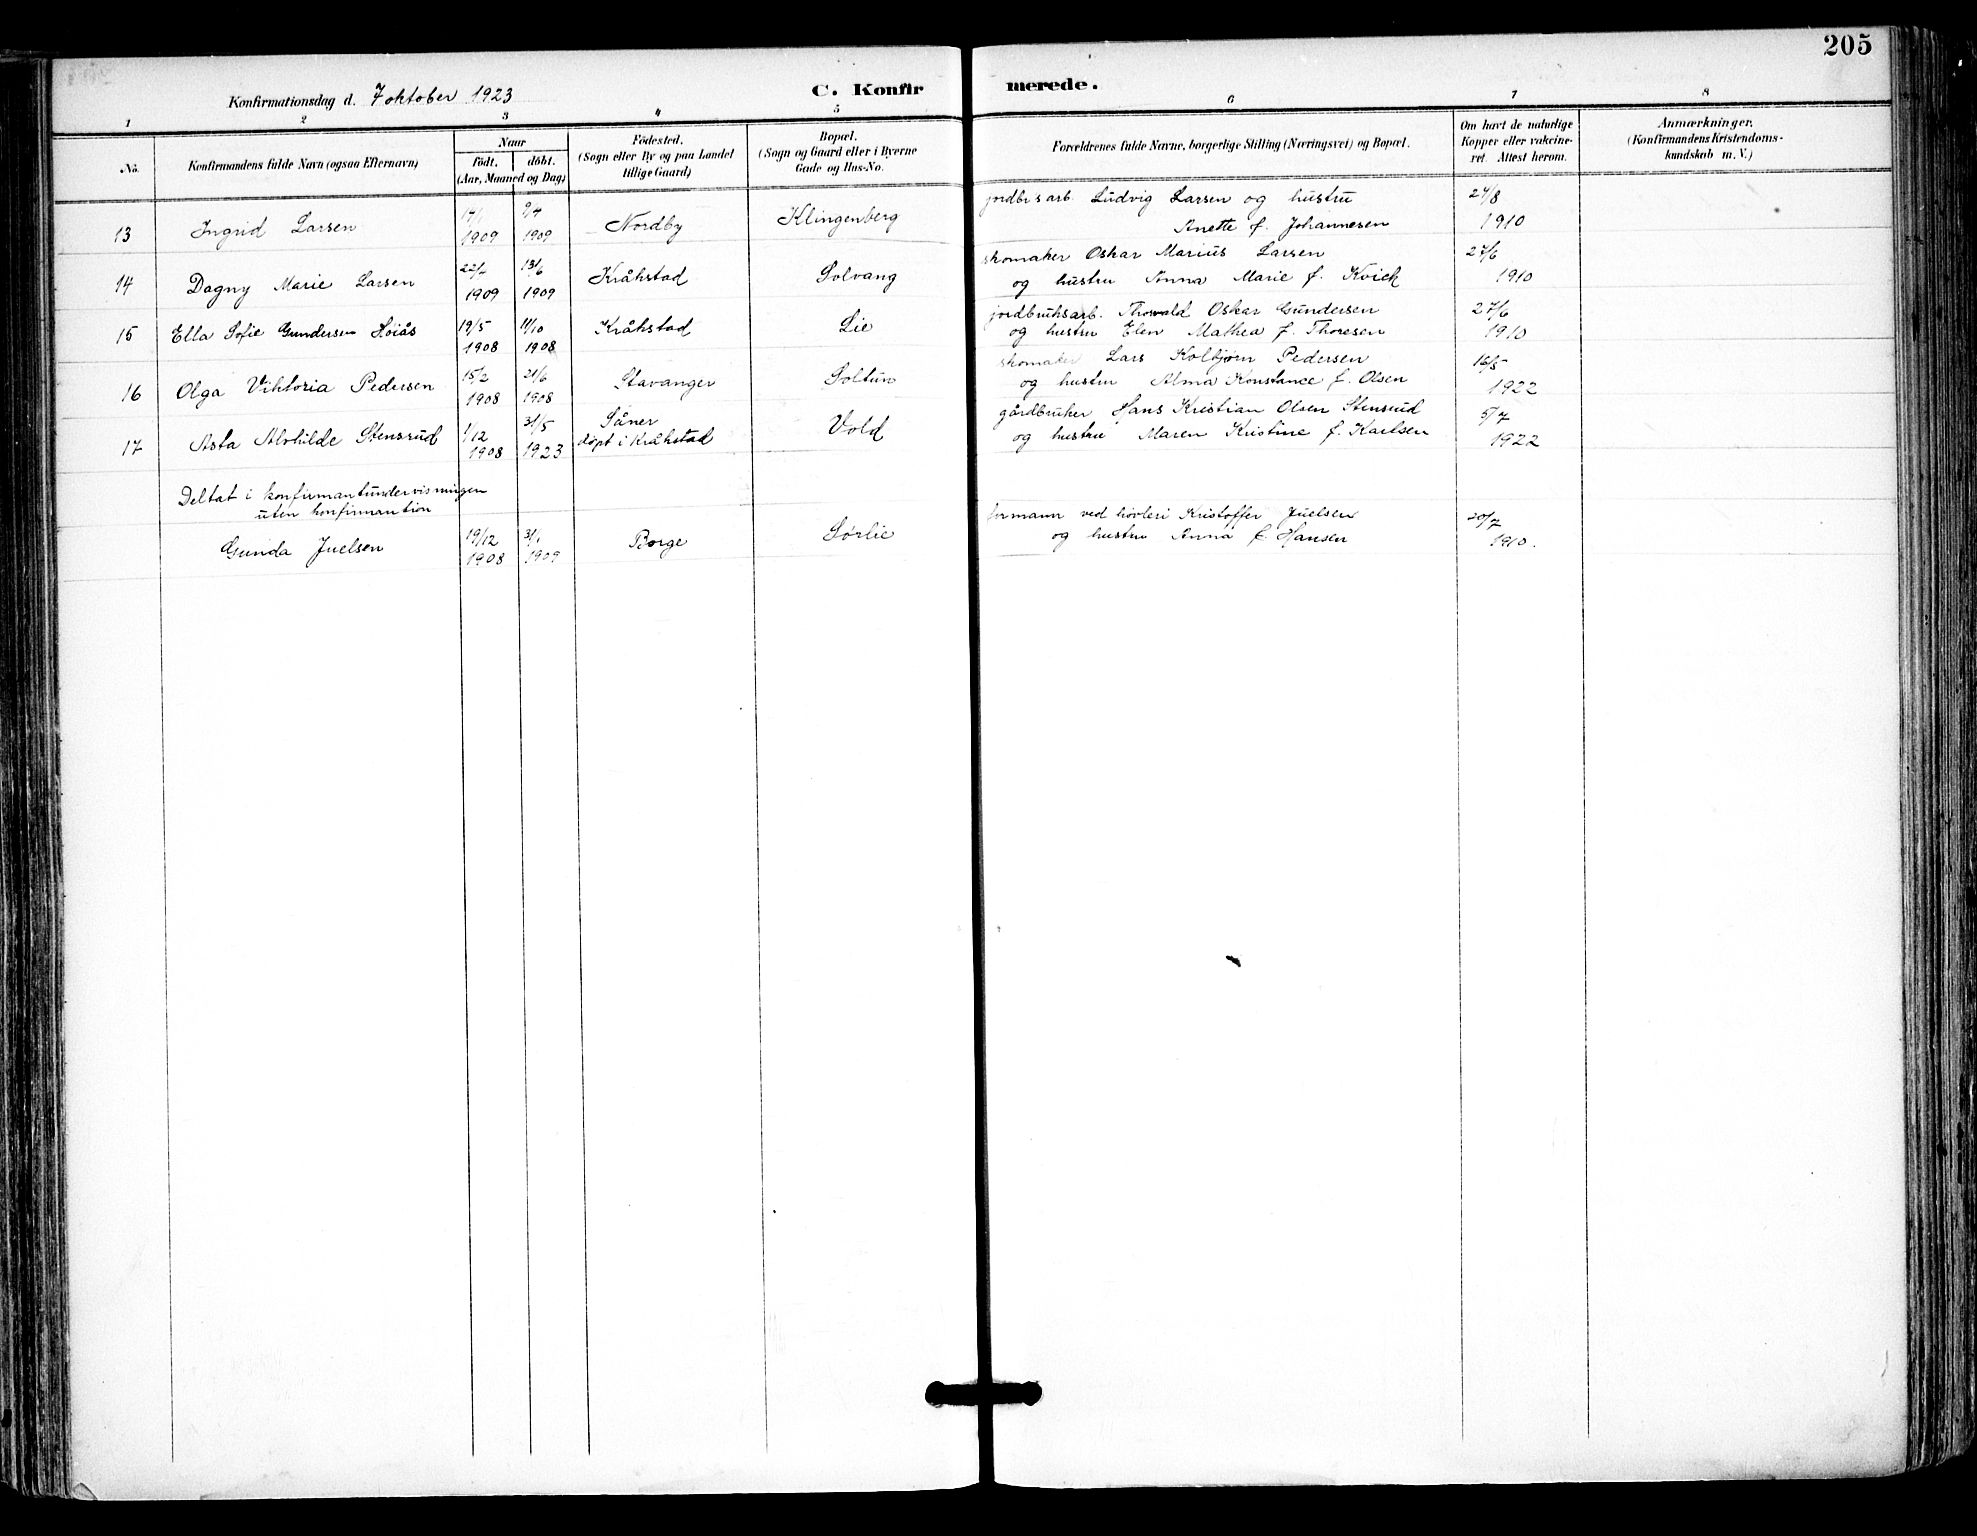 205
Konfirmationsdag d. 7 oktober 1923
C. Konfirmerede.
1 2 3 4 5 6 7 8
No.
Konfirmandens fulde Navn (ogsaa Efternavn)
Naar
født. døbt.
(Aar, Maaned og Dag)
Fødested.
(Sogn eller By og paa Landet
tillige Gaard)
Bopæl.
(Sogn og Gaard eller i Byerne
Gade og Hus-No.
Forældrenes fulde Navne, borgerlige Stilling (Næringsvei) og Bopæl.
Om havt de naturlige
Kopper eller vakcine-
ret. Attest herom.
Anmærkninger.
(Konfirmandens Kristendoms-
kundskab m. V.)
13 Ingrid Larsen 1909 1909 Nordby Klingenberg
Ludvig Larsen og hustru
Anette f. Johannesen
27/8
1910
14 Dagny Marie Larsen 1909 13/6 1909 Kråkstad Solvang
skomaker Oskar Marius Larsen
og hustru Anna Marie f. Kvick
27/6
1910
15 Ella Sofie Gundersen Høiås 19/5 1908 11/10 1908 Kråkstad Lie
jordbruksarb. Thorvald Oskar Gundersen
og hustru Elen Mathea f. Thoresen
27/6
1910
16 Olga Viktoria Pedersen 15/2 1908 21/6 1908 Stavanger Soltun
skomaker Lars Kolbjørn Pedersen
og hustru Alma Konstance f. Olsen
16/5
1922
17 Asta Alvhilde Stensrud 1/12 1908 31/5 1923 Såner
døpt i Kråkstad Vold
gårdbruker Hans Kristian Olsen Stensrud
og hustru Maren Kristine f. Karlsen
5/7
1922
Deltat i konfirmantundervisningen
uten konfirmantion
Gunda Juelsen 19/12 1908 31/1 1909 Borge Sørlie
formann ved høvleri Kristoffer Juelsen
og hustru Anna f. Hansen
20/7
1910.